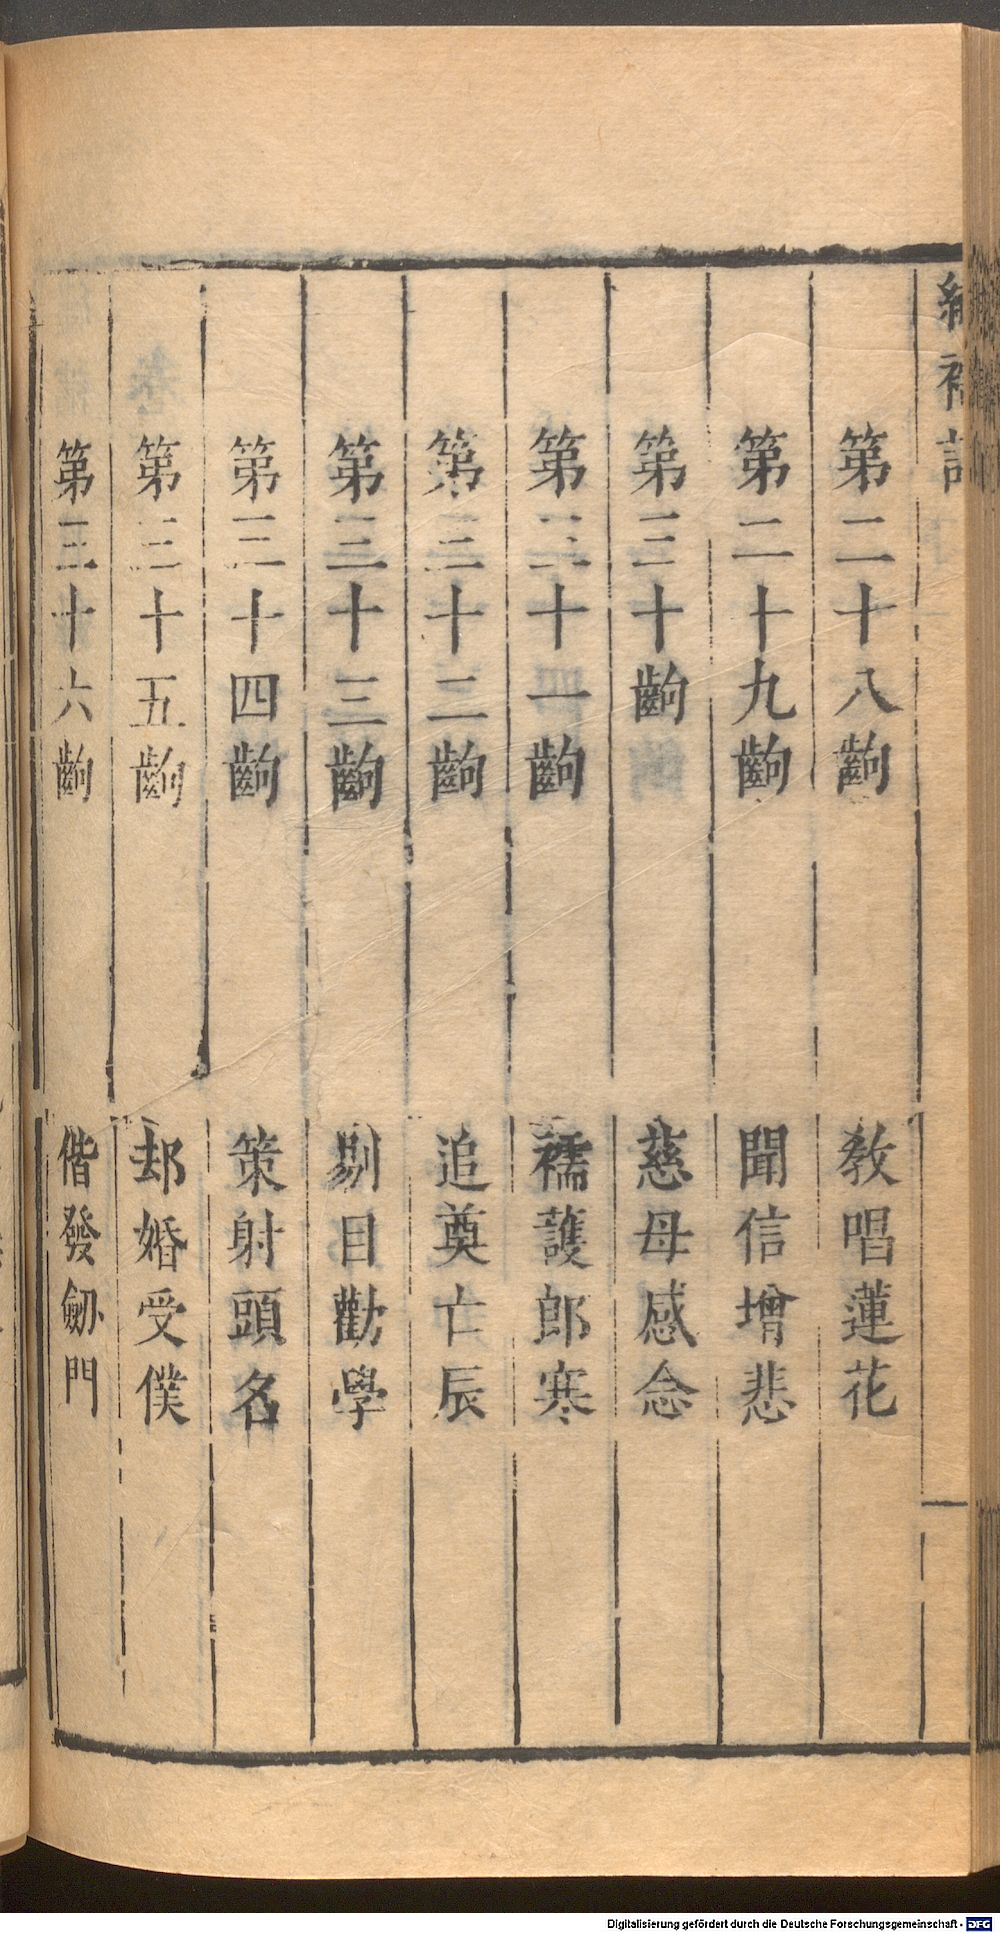 繡襦記
第二十八齣 教唱蓮花
第二十九齣 聞信增悲
第三十齣 慈母感念
第三十一齣 襦護郎寒
第三十二齣 追奠亡辰
第三十三齣 剔目勸學
第三十四齣 策射頭名
第三十五齣 却婚受僕
第三十六齣 偕發劒門
Digitalisierung gefördert durch die Deutsche Forschungsgemeinschaft - DFG